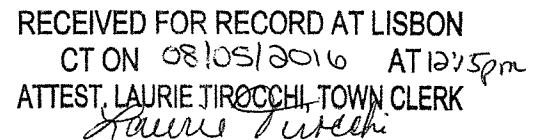 RECEIVED FOR RECORD AT LISBON
CT ON 08/05/2016 AT 12:15pm
ATTEST, LAURIE TIROCCHI, TOWN CLERK
Laurie Tirocchi